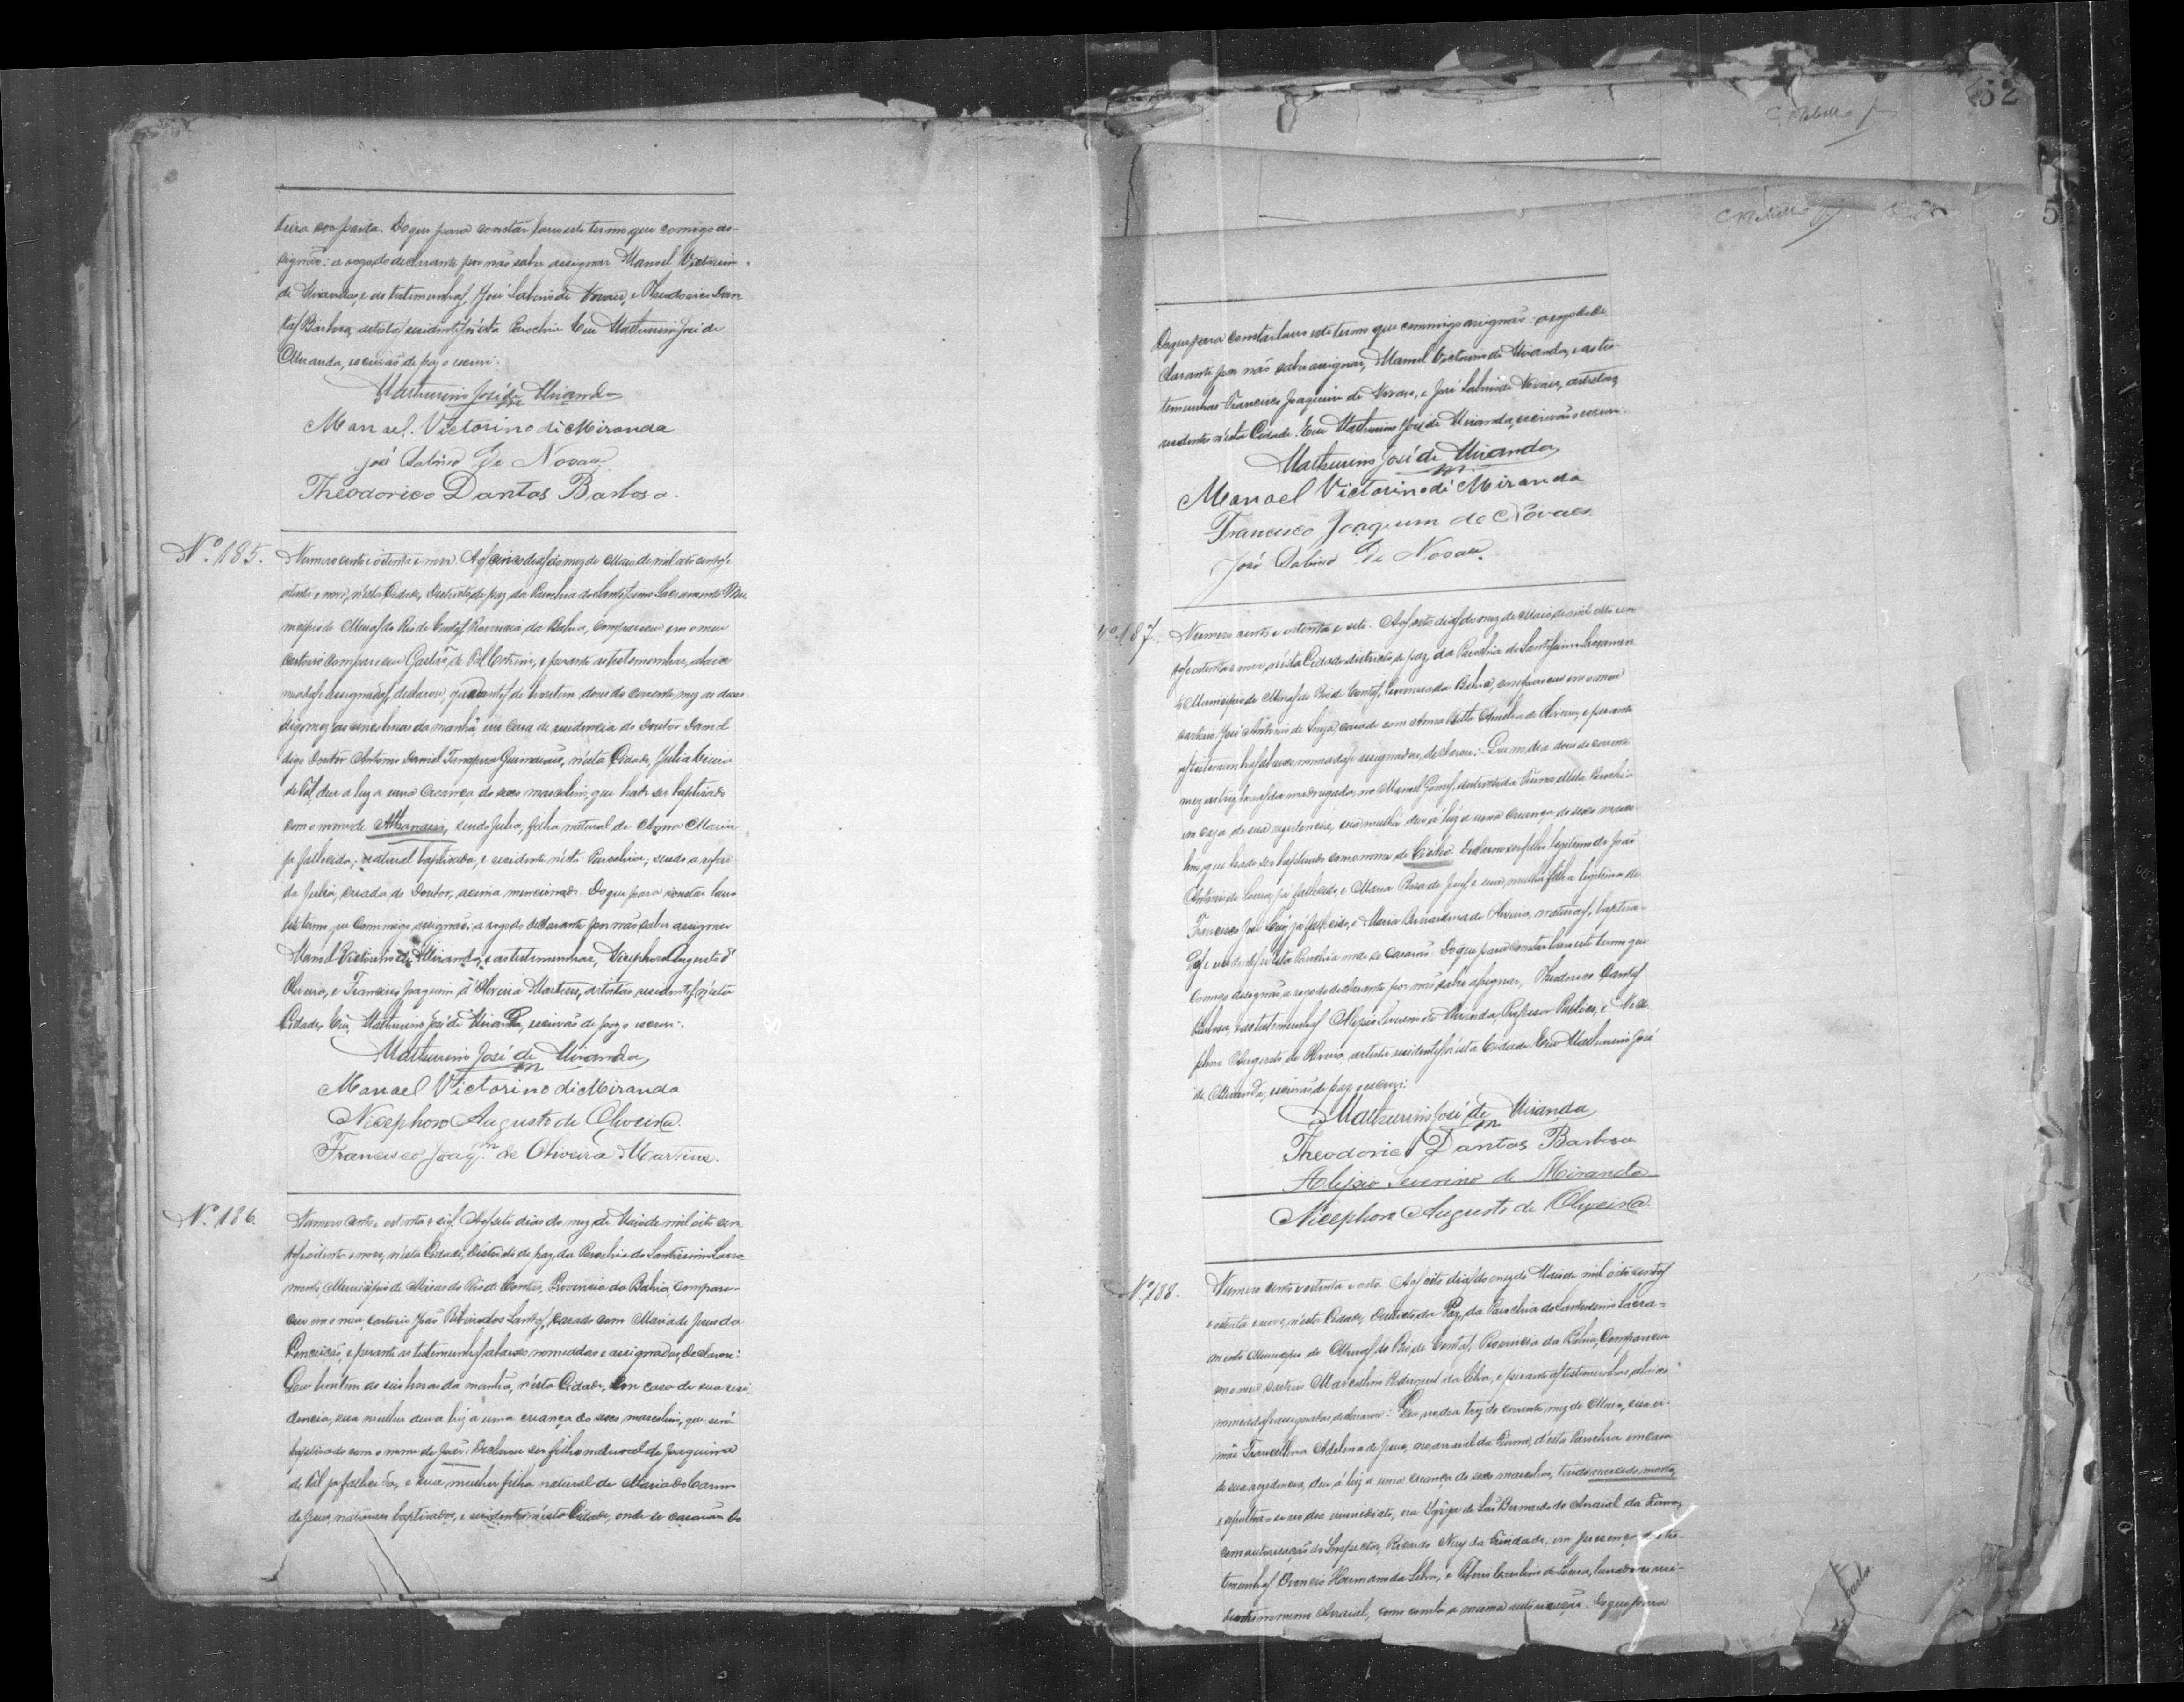 teira por parda. Do que para constar lavro este termo que comigo as-
signão: a rogo do declarante por não saber assignar Manoel Victorino
de Miranda, e as testemunhas, José Sabino de Novaes, e Theodorico Dan
tas Barbosa, artista residentes n'esta Parochia Eu Mathurino José de
Miranda, escrivão de paz o escrevi.
Mathurino José de Miranda
Manoel Victorino di Miranda
José Sabino De Novaes
Theodorico Dantas Barbosa.
Nº 185.
Numero cento e oitenta e Aos cinco dias do mez de Maio de mil oito centos e
oitenta e nove, n'esta Cidade, Districto de paz da Parochia do Santissimo Sacramento Mu
nicipio de Minas do Rio de Contas Provincia da Bahia, compareceu em o meu
cartorio compareceu Gastão de e perante as testemunhas, abaixo
assignadas, declarou, que de hontem dous do corrente mez as
digo mez as cinco horas da manhã, em casa de residencia do Doutor Daniel
digo Doutor Antonio Daniel Guimarães, n'esta Cidade, Julia
deu a luz a uma creança do sexo masculino, que hade ser baptisado
com o nome de Athanasio, sendo Julia, filha natural de Anna Maria
ja fallecida; natural baptisada, e residente n'esta Parochia; sendo a referi
da Julia, creada do Doutor, acima mencionado. Do que para constar lavro
este termo que commigo assignão; a rogo do declarante por não saber assignar
Manoel Victorino de Miranda, e as testemunhas, Nicephoro Augusto d'
Oliveira, e Francisco Joaquim d'Oliveira Martins, artistas residentes n'esta
Cidade Eu, Mathurino José de Miranda, escrivão de paz o escrevi.
Mathurino José de Miranda
Manoel Victorino di Miranda
Nicephoro Augusto de Oliveira.
Francisco Joaqm de Oliveira Martins.
Nº 186.
Numero cento e oitenta e seis. Aos sete dias do mez de Maio de mil oito cen
tos e oitenta e nove, n'esta Cidade, Districto de paz, da Parochia do Santissimo Sacra
mento, Municipio de Minas do Rio de Contas, Provincia da Bahia, compare-
ceu em o meu cartorio João Ribeiro dos Santos, casado com Maria de Jesus da
Conceição, e perante as testemunhas abaixo nomeadas e assignadas, declarou:
Que hontem as seis horas da manhã, n'esta Cidade, em casa de sua resi
dencia, sua mulher deu a luz a uma criança do sexo masculino, que será
baptisado com o nome de João. Declarou ser filho natural de Joaquina
de ja fallecida, e sua mulher filha natural de Maria do Carmo
de Jesus, naturaes baptisados, e residentes n'esta Cidade, onde se casarão Do
52
5
Do que para constar lavro este termo que commigo assignão: a rogo do de
clarante por não saber assignar, Manoel Victorino de Miranda, e as tes-
temunhas Francisco Joaquim de Novaes, e José Sabino de Novaes, artistas,
residentes n'esta Cidade. Eu Mathurino José de Miranda, escrivão o escrevi.
Mathurino José de Miranda
Manoel Victorino di Miranda
Francisco Joaquim de Novaes
José Sabino De Novaes.
Nº 187.
Numero cento e oitenta e sete. Aos oito dias do mez de Maio de mil oito cen
tos e oitenta e nove, n'esta Cidade districto de paz, da Parochia do Santissimo Sacramen
to Municipio de Minas do Rio de Contas, Provincia da Bahia, compareceu em o meu
cartorio José Antonio de Souza, casado com Anna Amelia de Oliveira, e perante
as testemunhas abaixo nomeadas e assignadas, declarou: Que no dia dous do corrente
mez as tres horas da madrugada, no Manoel Gomes, districto da Furna d'esta Parochia
em caza de sua rezidencia, sua mulher deu á luz a uma criança, do sexo mascu
lino, que hade ser baptisado com o nome de Declarou ser filho legitimo de João
Antonio de Souza, já fallecido, e Maria Rosa de Jesus, e sua mulher filha legitima de
Francisco José já fallecido, e Maria Bernardina de Oliveira, naturaes, baptisa-
dos e residentes n'esta Parochia onde se casarão. Do que para constar lavro este termo que
comigo assignão, a rogo do declarante por não saber assignar, Theodorico Dantas
Barbosa, e as testemunhas Aleixo Severino de Miranda, Professor Publico, e Nice
phoro Augusto de Oliveira, artista residentes n'esta Cidade. Eu Mathurino José
de Miranda, escrivão de paz o escrevi.
Mathurino José de Miranda
Theodorico Dantas Barbosa
Aleixo Severino de Miranda
Nicephoro Augusto de Oliveira
Nº 188.
Numero cento e oitenta e oito. Aos oito dias do mez de Maio de mil oito centos
e oitenta e nove, n'esta Cidade, Districto da Paz, da Parochia do Santissimo Sacra=
mento Municipio de Minas do Rio de Contas, Provincia da Bahia, Compareceu
em o meu cartorio Marcellino Rodrigues da Silva, e perante as testemunhas, abaixo
nomeadas e assignadas, declarou: Que no dia trez do corrente, mez de Maio, sua ir-
mãa Francellina Adelina de Jesus, no arraial da Furna, d'esta Parochia em casa
de sua rezidencia, deu á luz a uma criança do sexo masculino, tendo nascido morto,
e sepultou-se no dia immediato, na Igreja de São Bernardo do Arraial da Furna,
com autorisação do Inspector, Ricardo Nery da Trindade, em presença das tes-
temunhas Hermano da Silva, e de Souza, lavradores resi-
dentes no mesmo Arraial, como consta a mesma autorisação. Do que para